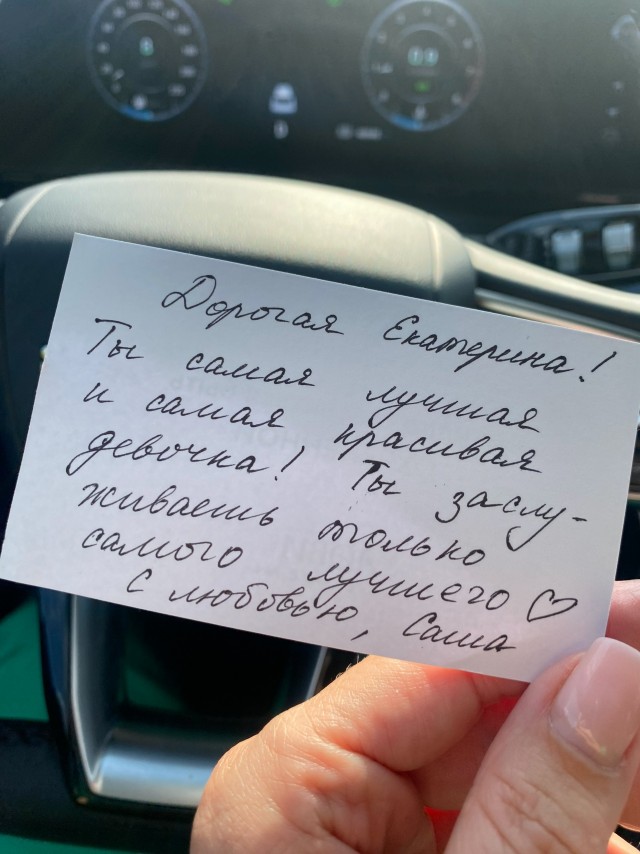 Дорогая Екатерина!
Ты самая лучшая
и самая красивая
девочка! Ты заслу-
живаешь только
самого лучшего ♡
С любовью, Саша